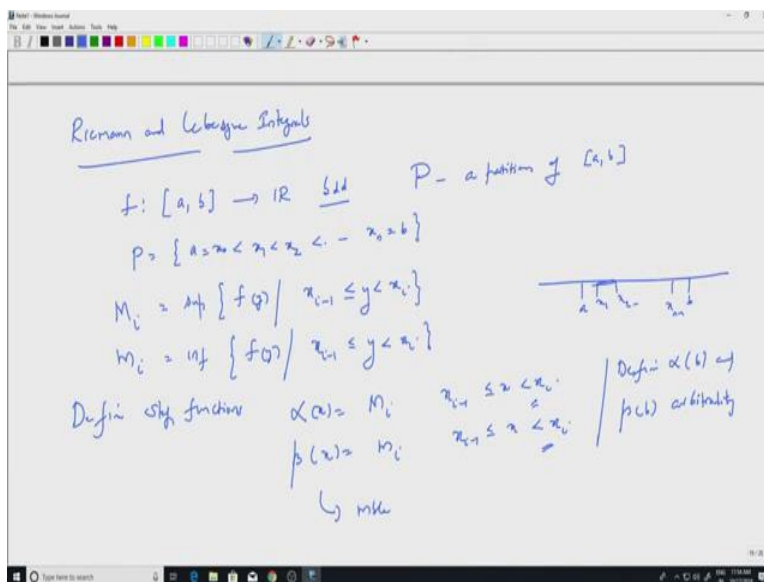 Note1 - Windows Journal
File Edit View Insert Actions Tools Help
Riemann and Lebesgue Integrals
f: [a, b] → IR bdd P - a partition of [a, b]
P = { a = x₀ < x₁ < x₂ < · - xₙ = b }
Mᵢ = sup { f(y) | xᵢ₋₁ ≤ y < xᵢ }
a x₁ x₂ - xₙ₋₁ b
mᵢ = inf { f(y) | xᵢ₋₁ ≤ y < xᵢ }
Define step functions α(x) = Mᵢ xᵢ₋₁ ≤ x < xᵢ
β(x) = mᵢ xᵢ₋₁ ≤ x < xᵢ
Define α(b) and
β(b) arbitrarily
↳ mble
Type here to search